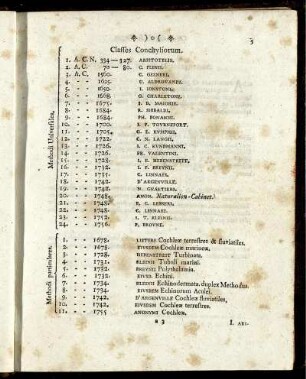 3
Classes Conchyliorum.
Methodi Universales.
1. A. C. N. 334—327. ARISTOTELIS.
2. A. C. 70—80. C. PLINII.
3. A. C. 1560. C. GESNERI.
4. 1605. U. ALDROVANDI.
5. 1650. I. IONSTONI.
6. 1668. G. CHARLETONI.
7. 1675.
8. 1684. R. SIBALDI.
9. 1684. PH. BONANNI.
10. 1700. I. P. TOURNEFORT.
11. 1705. G. E. RUMPHII.
12. C. N. LANGII.
13. I. C. KUNDMANNI.
14. FR. VALENTINI.
15. I. E. HEBENSTREIT.
16. I. P. BREYNII.
17. C. LINNAEI.
18. 1742. D'ARGENVILLE.
19. 1742. N. GUALTIERI.
20. 1748. ANON. Naturalien-Cabinet.
21. 1748.
22. 1748. C. LINNAEI.
23. I. T. KLEINII.
24. 1756. P. BROWNE.
Methodi particulares.
1. 1678. LISTERI Cochleæ terrestres & fluviatiles.
2. 1678. EIUSDEM Cochleæ marinæ.
3. 1728. HEBENSTREIT Turbinata.
4. 1731. KLEINII Tubuli marini.
5. 1732. BREYNII Polythalamia.
6. 1732. EIUSD. Echini.
7. 1734. KLEINII Echinodermata, duplex Methodus.
8. 1734. EIUSDEM Echinorum Aculei.
9. 1742. D'ARGENVILLE Cochleæ fluviatiles.
10. 1742. EIUSDEM Cochleæ terrestres.
11. 1755 ANONYMI Cochleæ.
I. ARI-